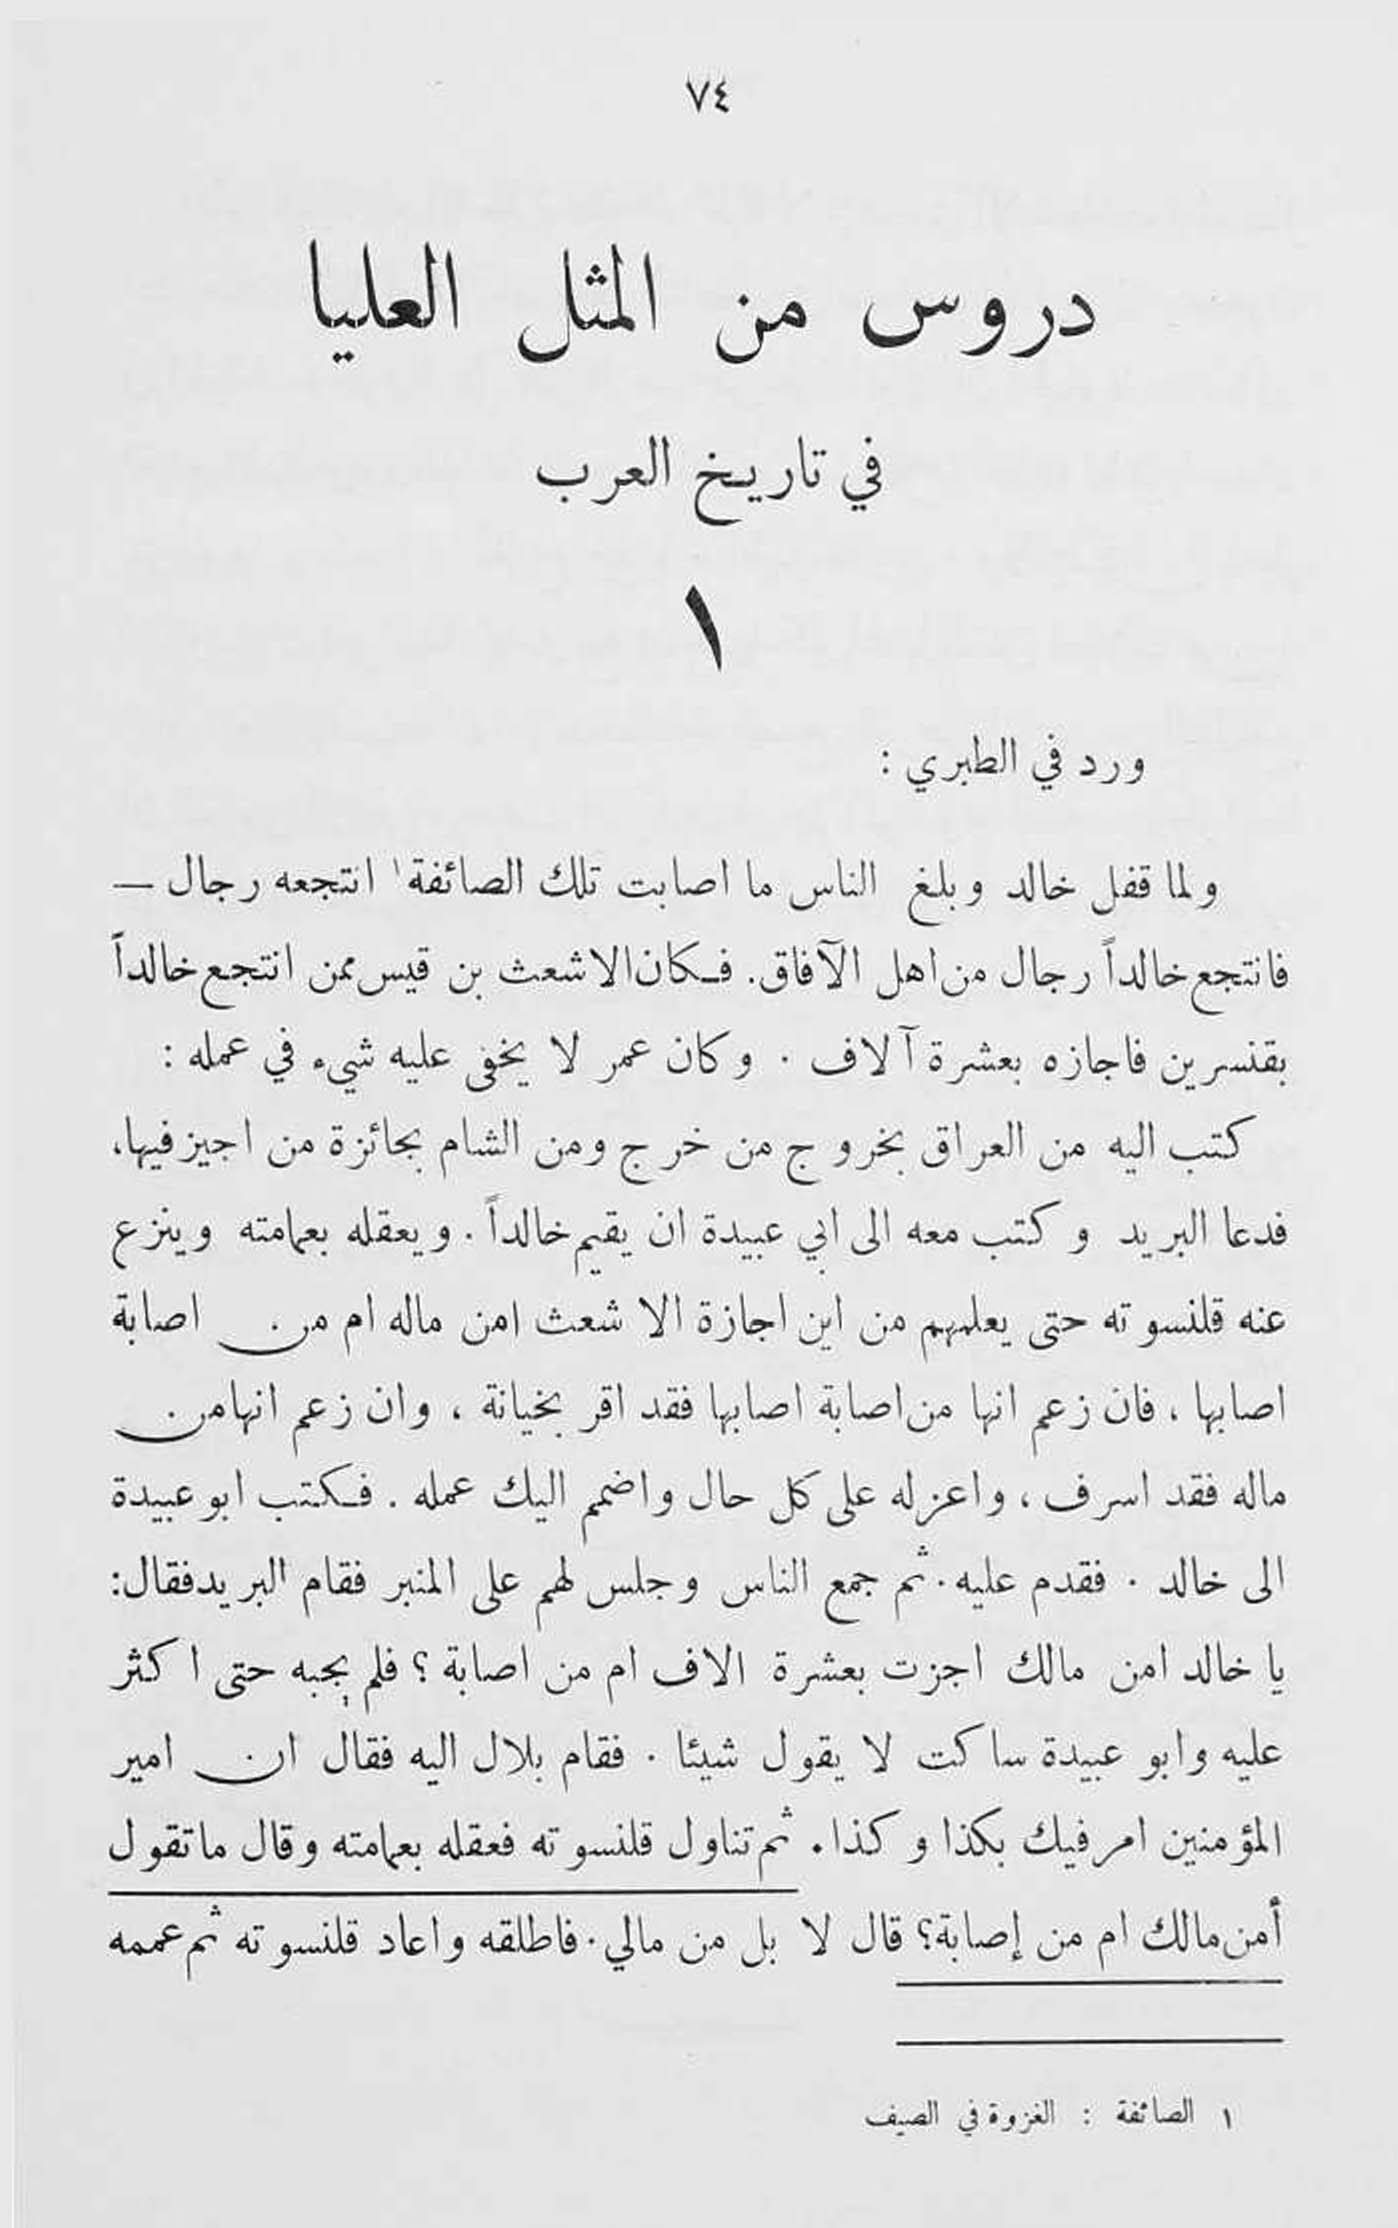 ٧٤
دروس من المثل العليا
في تاريخ العرب
١
ورد في الطبري :
ولما قفل خالد وبلغ الناس ما اصابت تلك الصائفة١ انتجعه رجال —
فانتجع خالداً رجال من اهل الآفاق. فكان الاشعث بن قيس ممن انتجع خالداً
بقنسرين فاجازه بعشرة آلاف . وكان عمر لا يخفى عليه شيء في عمله :
كتب اليه من العراق بخروج من خرج ومن الشام بجائزة من اجيز فيها،
فدعا البريد وكتب معه الى ابي عبيدة ان يقيم خالداً . ويعقله بعمامته وينزع
عنه قلنسوته حتى يعلمهم من اين اجازة الاشعث امن ماله ام من اصابة
اصابها ، فان زعم انها من اصابة اصابها فقد اقر بخيانة ، وان زعم انها من
ماله فقد اسرف ، واعزله على كل حال واضمم اليك عمله . فكتب ابو عبيدة
الى خالد . فقدم عليه . ثم جمع الناس وجلس لهم على المنبر فقام البريد فقال:
يا خالد امن مالك اجزت بعشرة الاف ام من اصابة ؟ فلم يجبه حتى اكثر
عليه وابو عبيدة ساكت لا يقول شيئا . فقام بلال اليه فقال ان امير
المؤمنين امر فيك بكذا وكذا . ثم تناول قلنسوته فعقله بعمامته وقال ما تقول
أمن مالك ام من إصابة؟ قال لا بل من مالي . فاطلقه واعاد قلنسوته ثم عممه
١ الصائفة : الغزوة في الصيف